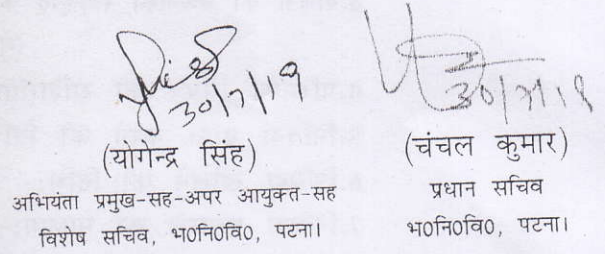 30/7/19
(योगेन्द्र सिंह)
अभियंता प्रमुख-सह-अपर आयुक्त-सह
विशेष सचिव, भ0नि0वि0, पटना।
30/7/19
(चंचल कुमार)
प्रधान सचिव
भ0नि0वि0, पटना।